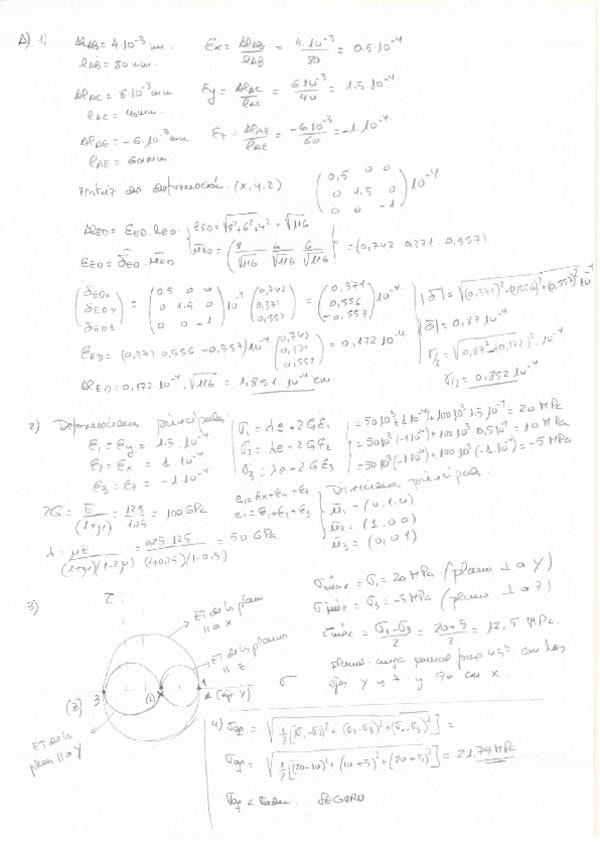 A) 1) ΔlAB = 4·10⁻³ mm. Ex = ΔlAB/lAB = 4·10⁻³/80 = 0.5·10⁻⁴
lAB = 80 mm.
ΔlAC = 6·10⁻³ mm Ey = ΔlAC/lAC = 6·10⁻³/40 = 1.5·10⁻⁴
lAC = 40 mm.
ΔlAE = -6·10⁻³ mm Ez = ΔlAE/lAE = -6·10⁻³/60 = -1·10⁻⁴
lAE = 60 mm.
Matriz de deformación (x, y, z) (0,5 0 0 / 0 1.5 0 / 0 0 -1) 10⁻⁴
ΔlED = EED · lED. lED = √8²+6²+4² = √116
EED = δED · ūED ūED = (8/√116 4/√116 6/√116) = (0,742 0,371 0,557)
(δEDx / δEDy / δEDz) = (0.5 0 0 / 0 1.5 0 / 0 0 -1) 10⁻⁴ (0,742 / 0,371 / 0,557) = (0,371 / 0,556 / -0,557) 10⁻⁴
|δ| = √(0,371)²+(0,556)²+(0,557)² 10⁻⁴
|δ| = 0,87 10⁻⁴
γ/2 = √0,87² - (0,172)² · 10⁻⁴
γ/2 = 0,852 10⁻⁴
EED = (0,371 0,556 -0,557) 10⁻⁴ (0,742 / 0,371 / 0,557) = 0,172 10⁻⁴
ΔlED = 0,172 10⁻⁴ · √116 = 1,851 · 10⁻⁴ cm.
2) Deformaciones principales.
E1 = Ey = 1.5 · 10⁻⁴
E2 = Ex = 1 10⁻⁴
E3 = Ez = -1 10⁻⁴
σ1 = λe + 2GE1 = 50 10³ (1 10⁻⁴) + 100 10³ 1.5 10⁻⁴ = 20 MPa
σ2 = λe + 2GE2 = 50 10³ (-1 10⁻⁴) + 100 10³ 0,5 10⁻⁴ = 10 MPa
σ3 = λe + 2GE3 = 50 10³ (-1 10⁻⁴) + 100 10³ (-1 10⁻⁴) = -5 MPa
2G = E/(1+μ) = 125/1.25 = 100 GPa
λ = μE/(1+μ)(1-2μ) = 0,25 · 125/(1+0,25)(1-0.5) = 50 GPa
e = Ex + Ey + Ez
e = E1 + E2 + E3
Direcciones principales.
ū1 = (0, 1, 0)
ū2 = (1, 0 0)
ū3 = (0, 0 1)
3) τ
ET de los planos // a x
ET de los planos // z
ET de los planos // a y
(z) 3 (2) x 1 (eje Y) σ
σmáx = σ1 = 20 MPa (plano ⊥ a Y)
σmáx = σ3 = -5 MPa (plano ⊥ a z)
τmáx = σ1 - σ3/2 = 20+5/2 = 12,5 MPa.
planos cuya normal forma 45° con los
ejes Y y Z y 90 con x.
4) σeq. = √1/2[(σ1-σ2)² + (σ2-σ3)² + (σ1-σ3)²] =
σeq. = √1/2[(20-10)² + (10+5)² + (20+5)²] = 21,79 MPa
σeq < σadm. SEGURO